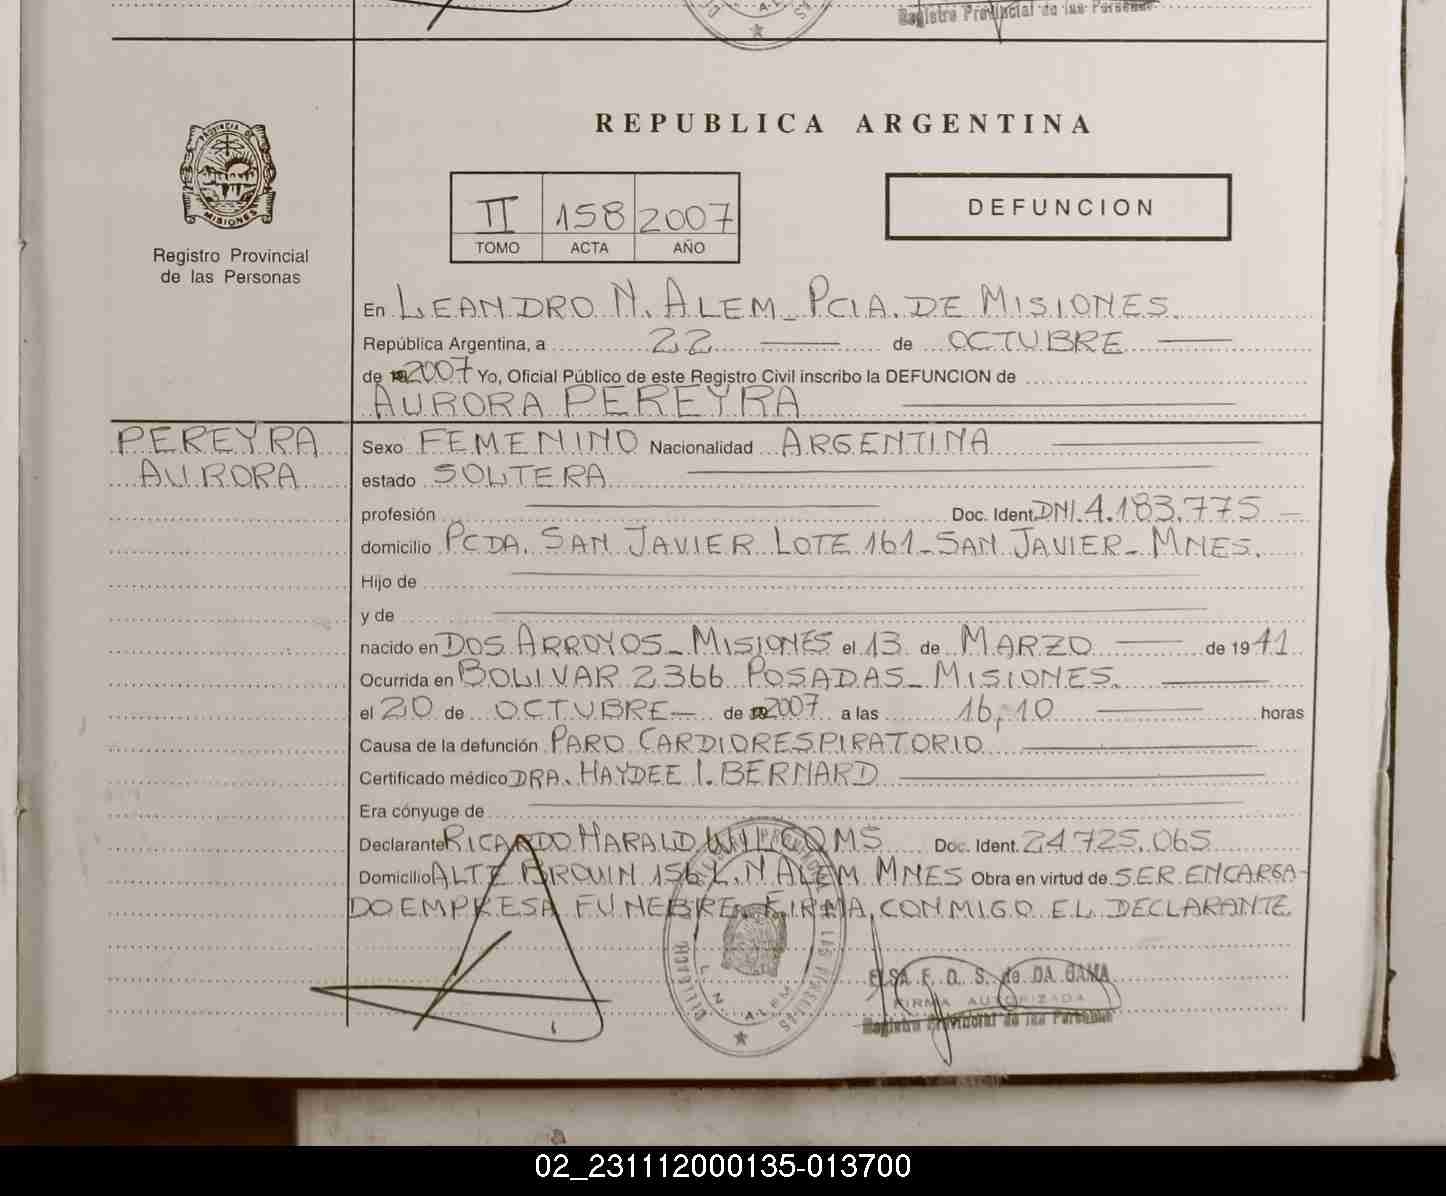 Registro Provincial de las Personas
REPUBLICA ARGENTINA
PROVINCIA DE MISIONES
II 158 2007
TOMO ACTA AÑO
DEFUNCION
Registro Provincial
de las Personas
En LEANDRO N. ALEM_ PCIA. DE MISIONES.
República Argentina, a 22 de OCTUBRE
de 2007 Yo, Oficial Público de este Registro Civil inscribo la DEFUNCION de
AURORA PEREYRA
PEREYRA
AURORA
Sexo FEMENINO Nacionalidad ARGENTINA
estado SOLTERA
profesión Doc. Ident. DNI. 4.183.775
domicilio PCDA. SAN JAVIER LOTE 161_ SAN JAVIER_ MNES.
Hijo de
y de
nacido en DOS ARROYOS_ MISIONES el 13 de MARZO de 1941
Ocurrida en BOLIVAR 2366 POSADAS_ MISIONES.
el 20 de OCTUBRE de 2007 a las 16,10 horas
Causa de la defunción PARO CARDIORESPIRATORIO
Certificado médico DRA. HAYDEE I. BERNARD
Era cónyuge de
Declarante RICARDO HARALD WILCOMS Doc. Ident. 24.725.065
Domicilio ALTE BROUIN 156 L. N ALEM MNES Obra en virtud de SER ENCARGA-
DO EMPRESA FUNEBRE. FIRMA CONMIGO EL DECLARANTE
L. N. ALEM
ELSA F. D. S. de DA GAMA
FIRMA AUTORIZADA
Registro Provincial de las Personas
02_231112000135-013700